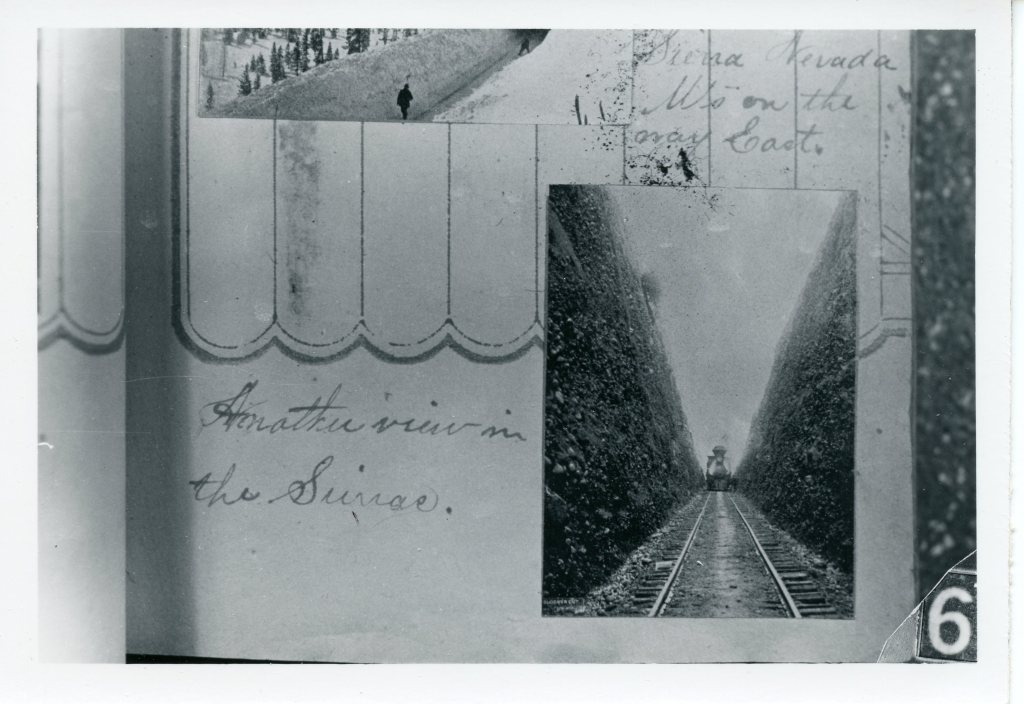 Sierra Nevada
Mt's on the
way East.
Another view in
the Sierras.
6